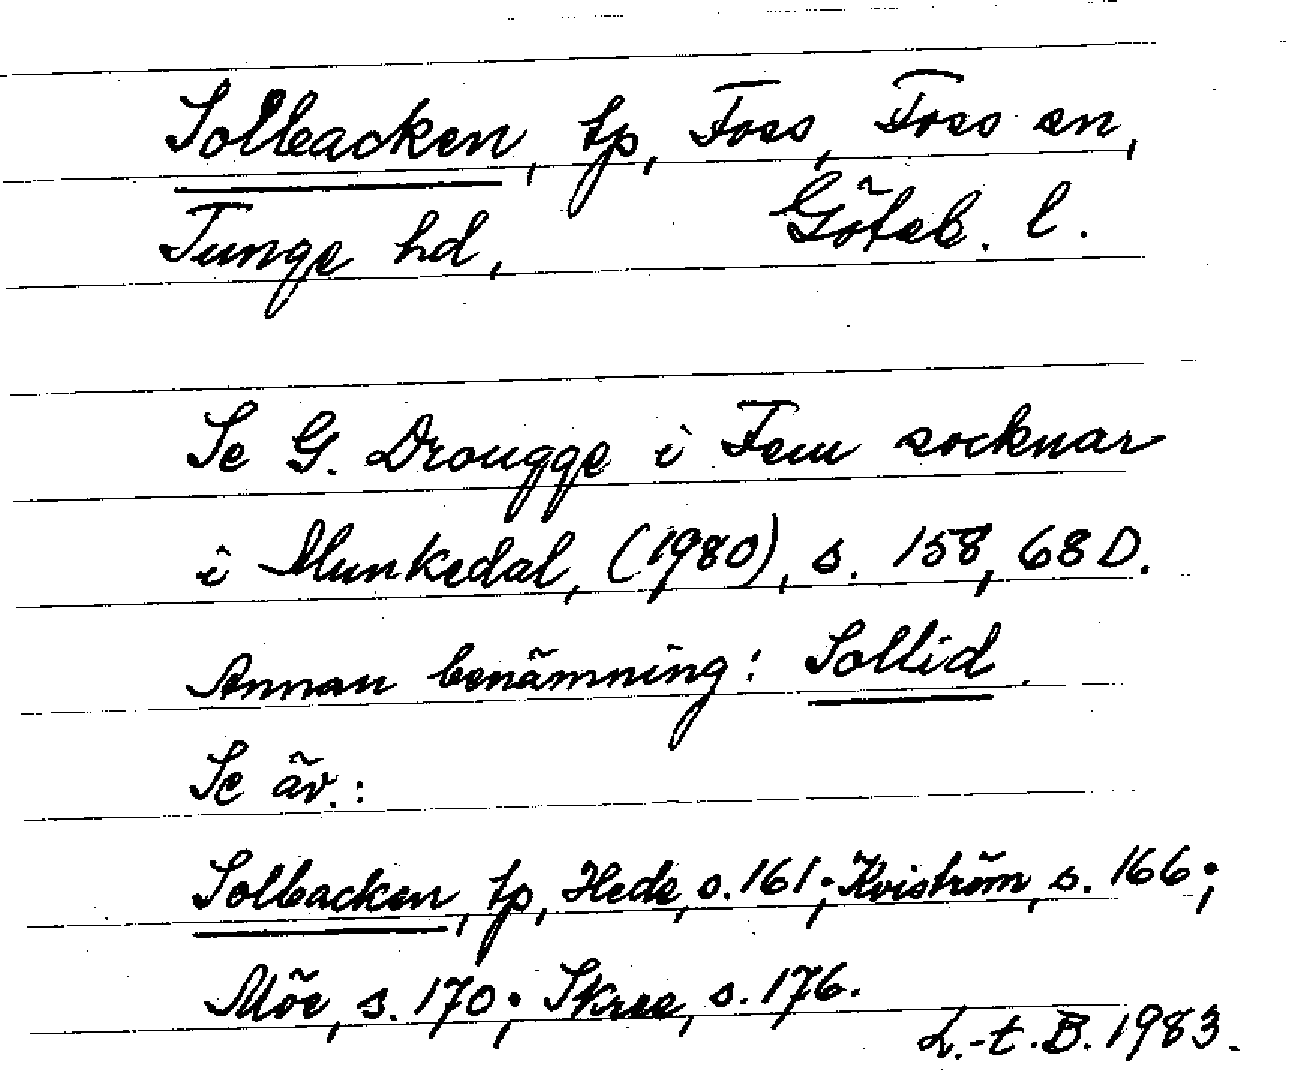 Solbacken, tp, Foss, Foss sn,
Tunge hd, Göteb. l.
Se G. Drougge i Fem socknar
i Munkedal, (1980), s. 158, 68 D.
Annan benämning: Sollid.
Se äv.:
Solbacken, tp, Hede, s. 161; Kviström, s. 166;
Möe, s. 170; Skree, s. 176.
L.-t. B. 1983.